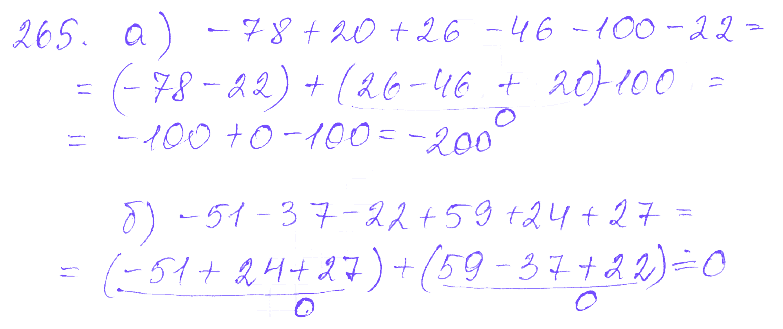 265. а) -78+20+26-46-100-22=
=(-78-22)+(26-46+20)-100=
0
=-100+0-100=-200
б) -51-37-22+59+24+27=
=(-51+24+27)+(59-37+22)=0
0 0